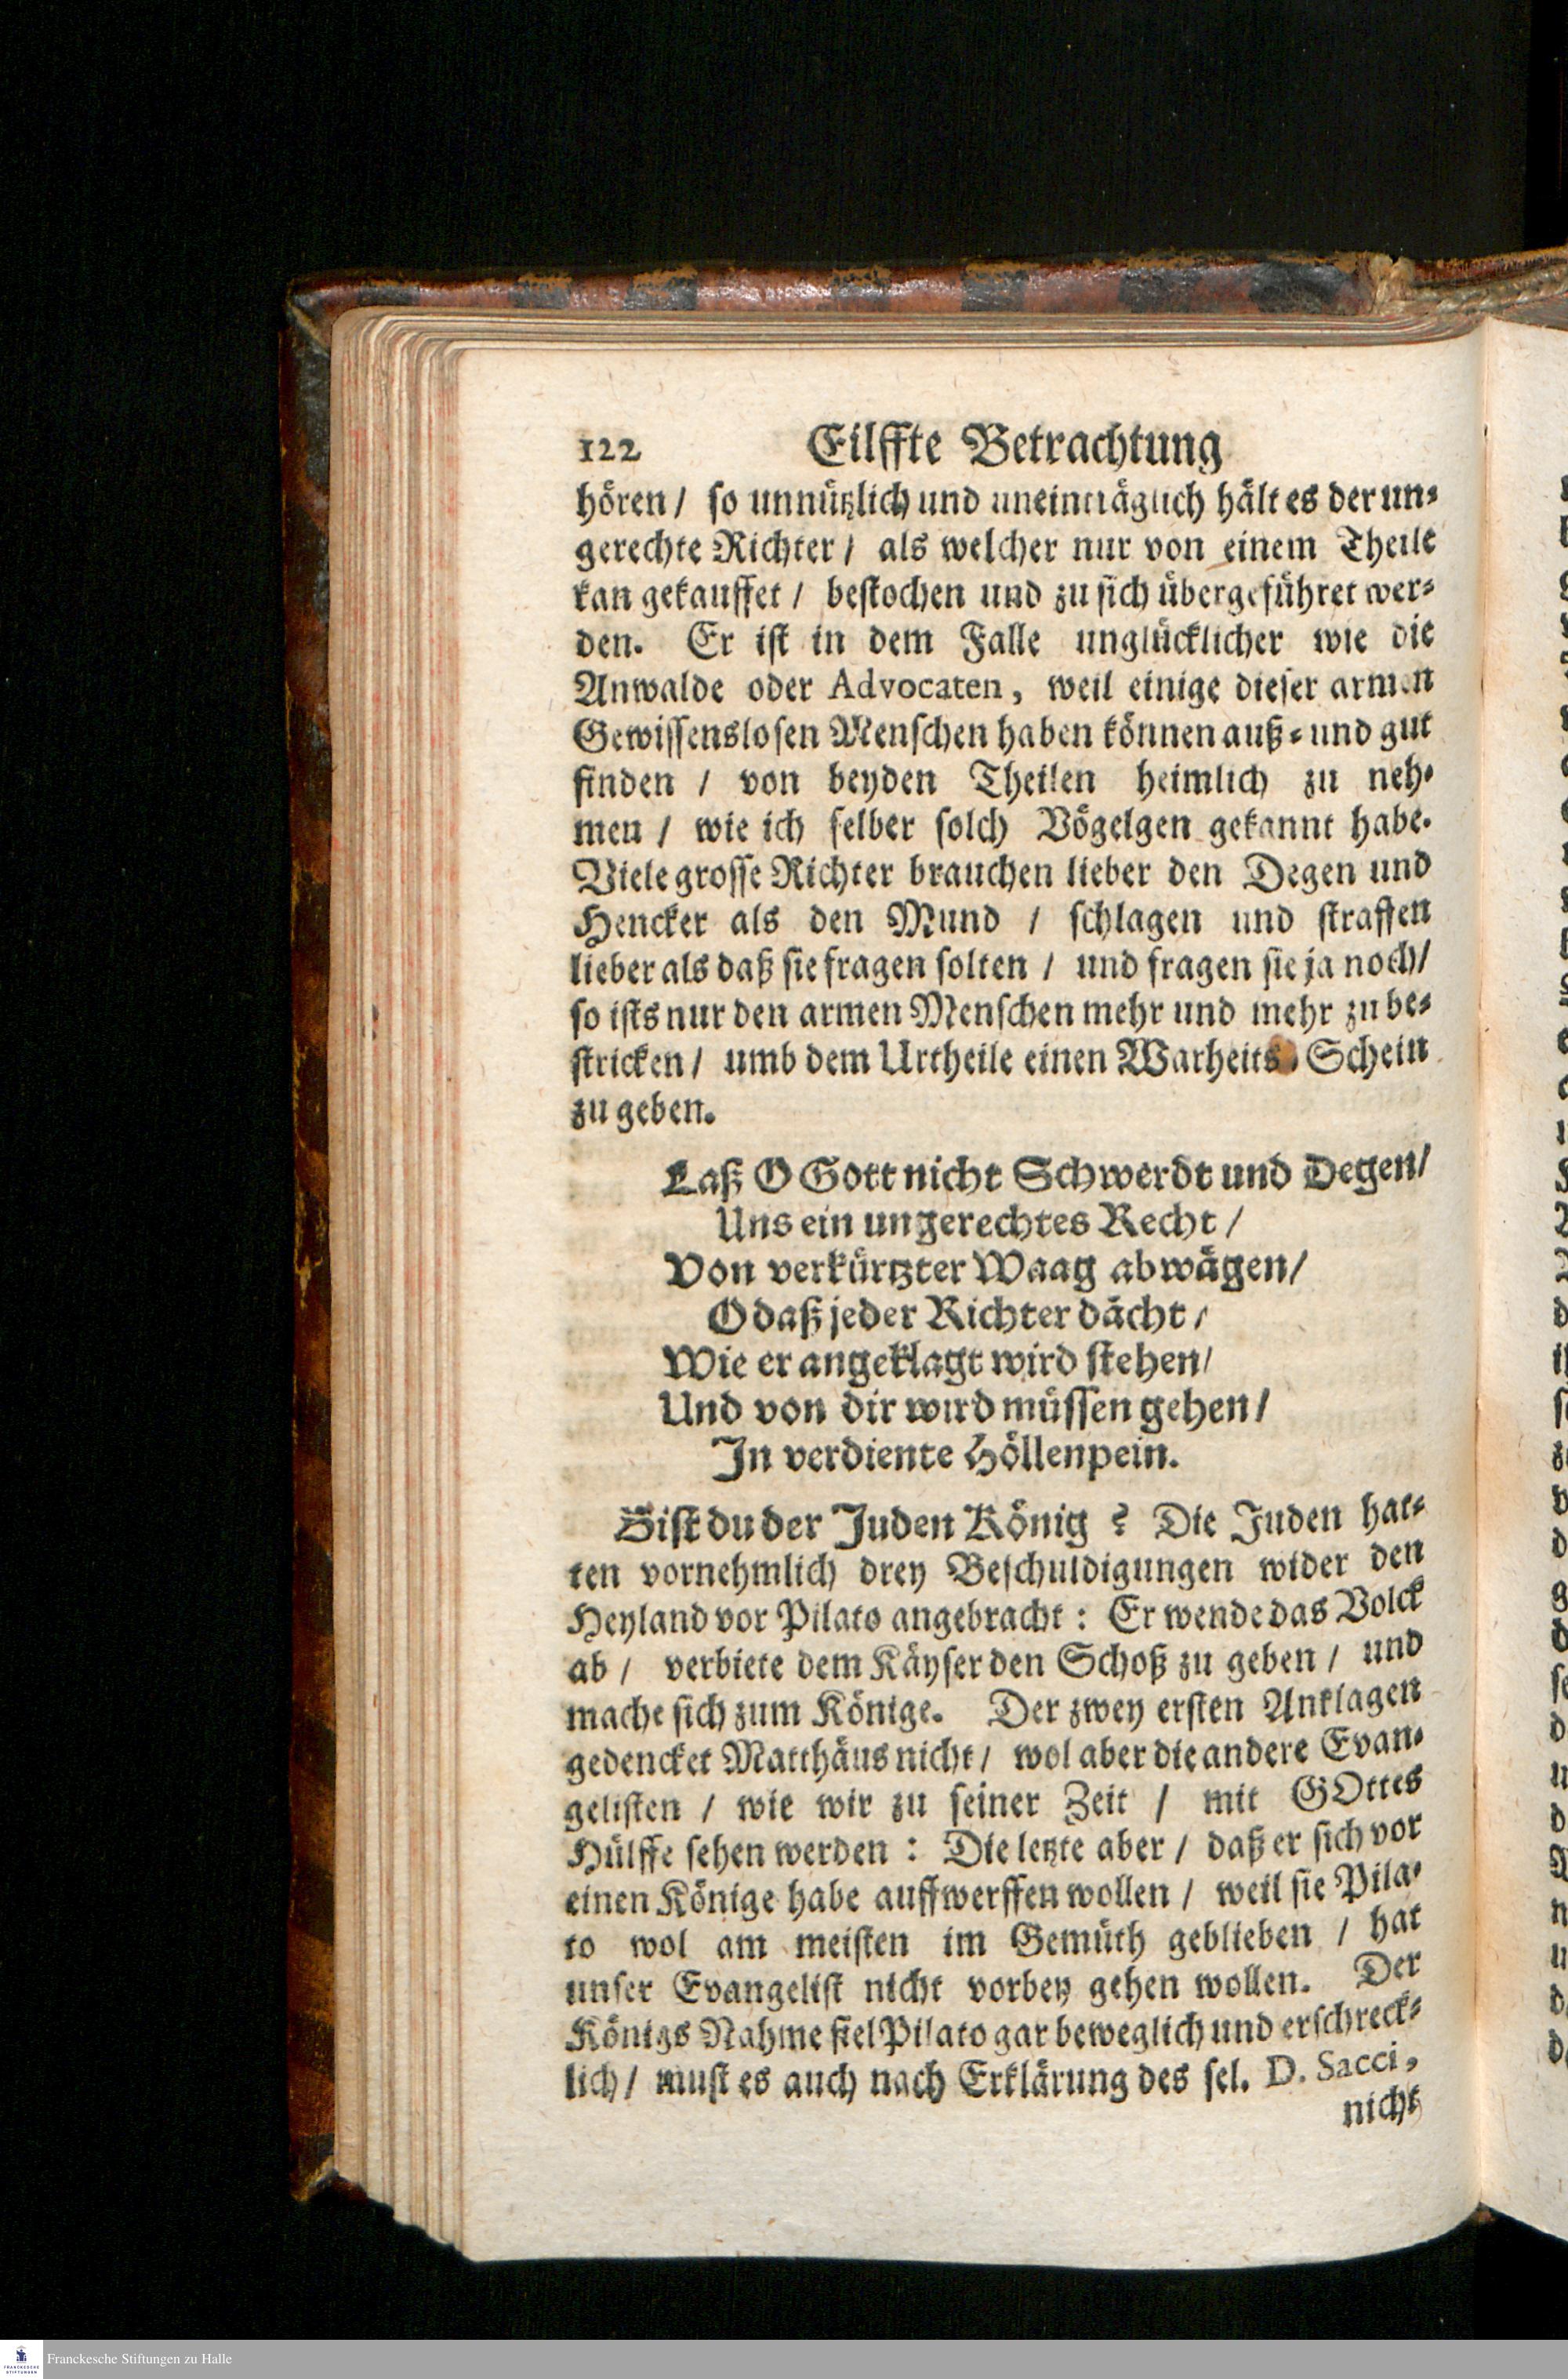 122 Eilffte Betrachtung
hören / so unnützlich und uneinträglich hält es der un-
gerechte Richter / als welcher nur von einem Theile
kan gekauffet / bestochen und zu sich übergeführet wer-
den. Er ist in dem Falle unglücklicher wie die
Anwalde oder Advocaten, weil einige dieser armen
Gewissenslosen Menschen haben können auß- und gut
finden / von beyden Theilen heimlich zu neh-
men / wie ich selber solch Vögelgen gekannt habe.
Viele grosse Richter brauchen lieber den Degen und
Hencker als den Mund / schlagen und straffen
lieber als daß sie fragen solten / und fragen sie ja noch /
so ists nur den armen Menschen mehr und mehr zu be-
stricken / umb dem Urtheile einen Warheits-Schein
zu geben.
Laß O Gott nicht Schwerdt und Degen /
Uns ein ungerechtes Recht /
Von verkürtzter Waag abwägen /
O daß jeder Richter dächt /
Wie er angeklagt wird stehen /
Und von dir wird müssen gehen /
In verdiente Höllenpein.
Bist du der Juden König? Die Juden hat-
ten vornehmlich drey Beschuldigungen wider den
Heyland vor Pilato angebracht: Er wende das Volck
ab / verbiete dem Käyser den Schoß zu geben / und
mache sich zum Könige. Der zwey ersten Anklagen
gedencket Matthäus nicht / wol aber die andere Evan-
gelisten / wie wir zu seiner Zeit / mit GOttes
Hülffe sehen werden: Die letzte aber / daß er sich vor
einen Könige habe auffwerffen wollen / weil sie Pila-
to wol am meisten im Gemüth geblieben / hat
unser Evangelist nicht vorbey gehen wollen. Der
Königs Nahme fiel Pilato gar beweglich und erschreck-
lich / must es auch nach Erklärung des sel. D. Sacci,
nicht
Franckesche Stiftungen zu Halle